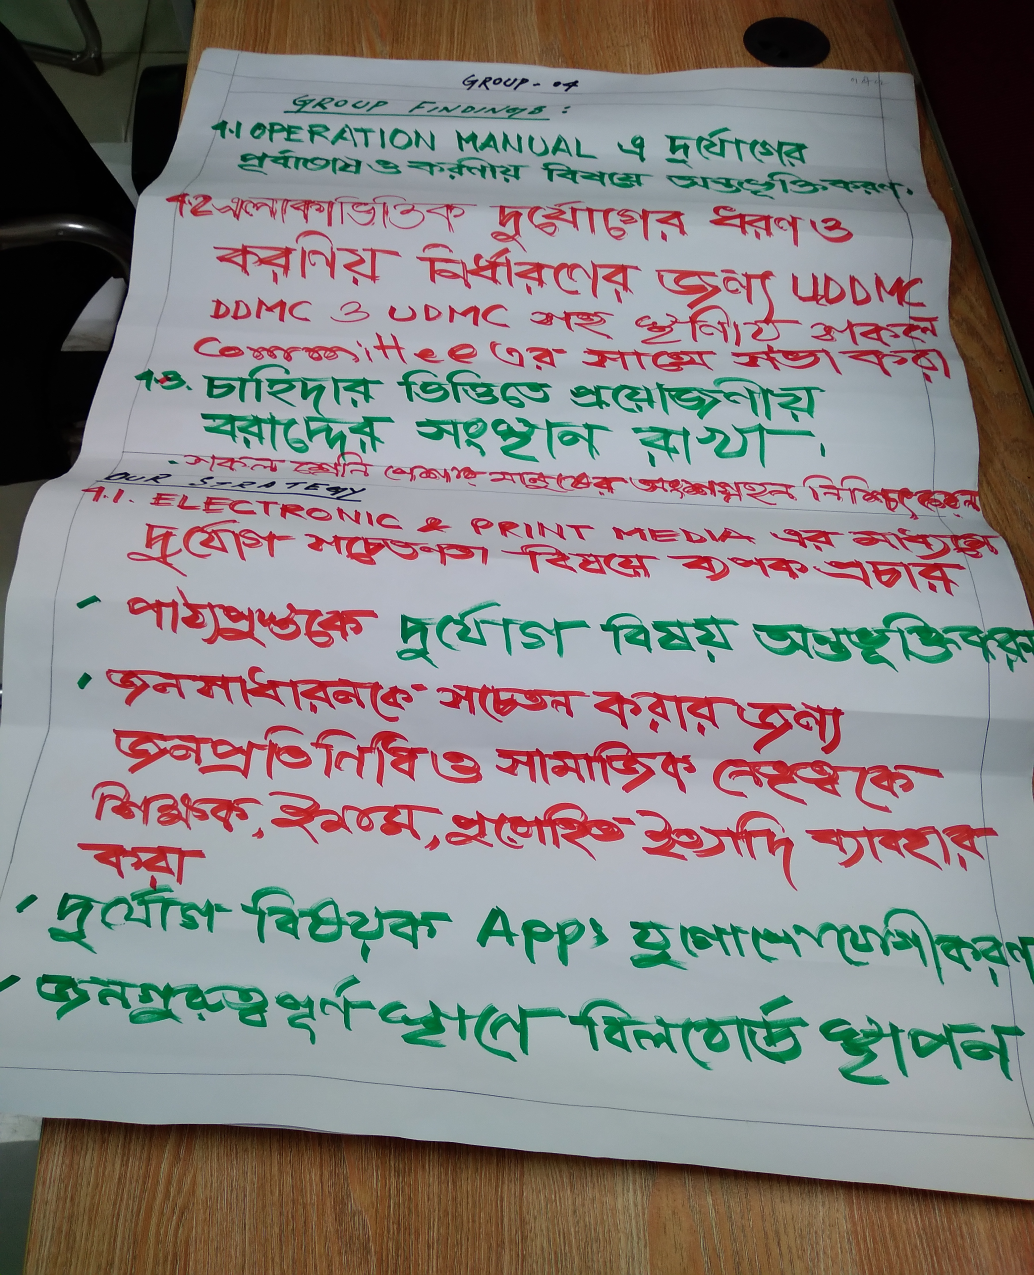 GROUP - 04
GROUP FINDINGS :
4.1 OPERATION MANUAL এ দুর্যোগের
পূর্বাভাষ ও করণীয় বিষয়ে অন্তর্ভূক্তিকরণ।
4.2 এলাকাভিত্তিক দুর্যোগের ধরণ ও
করণিয় নির্ধারণের জন্য UDDMC
DDMC ও UDMC সহ স্থানীয় সকল
Committee এর সাথে সভা করা
4.3. চাহিদার ভিত্তিতে প্রয়োজণীয়
বরাদ্দের সংস্থান রাখা।
- সকল শ্রেনি পেশার মানুষের অংশগ্রহন নিশ্চিৎ
OUR STRATEGY
4.1. ELECTRONIC & PRINT MEDIA এর মাধ্যমে
দুর্যোগ সচেতনতা বিষয়ে ব্যপক প্রচার
পাঠ্যপুস্তকে দুর্যোগ বিষয় অন্তর্ভূক্তিকরন
জনসাধারনকে সচেতন করার জন্য
জনপ্রতিনিধি ও সামাজিক নেতৃত্বকে
শিক্ষক, ইমাম, পুরোহিত ইত্যাদি ব্যাবহার
করা
দুর্যোগ বিষয়ক Apps যুগোপযোগীকরণ
জনগুরুত্বপূর্ণ স্থানে বিলবোর্ড স্থাপন